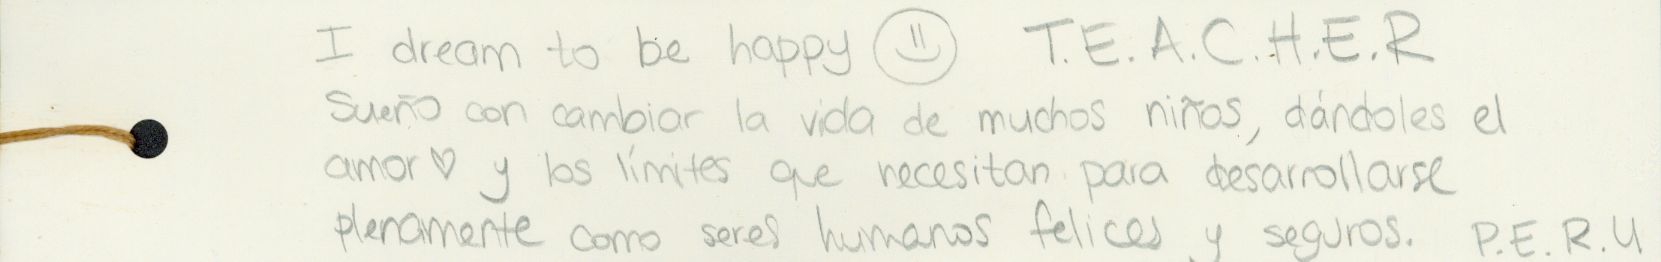 I dream to be happy T.E.A.C.H.E.R
Sueño con cambiar la vida de muchos niños, dándoles el
amor♡ y los límites que necesitan para desarrollarse
plenamente como seres humanos felices y seguros. P.E.R.U